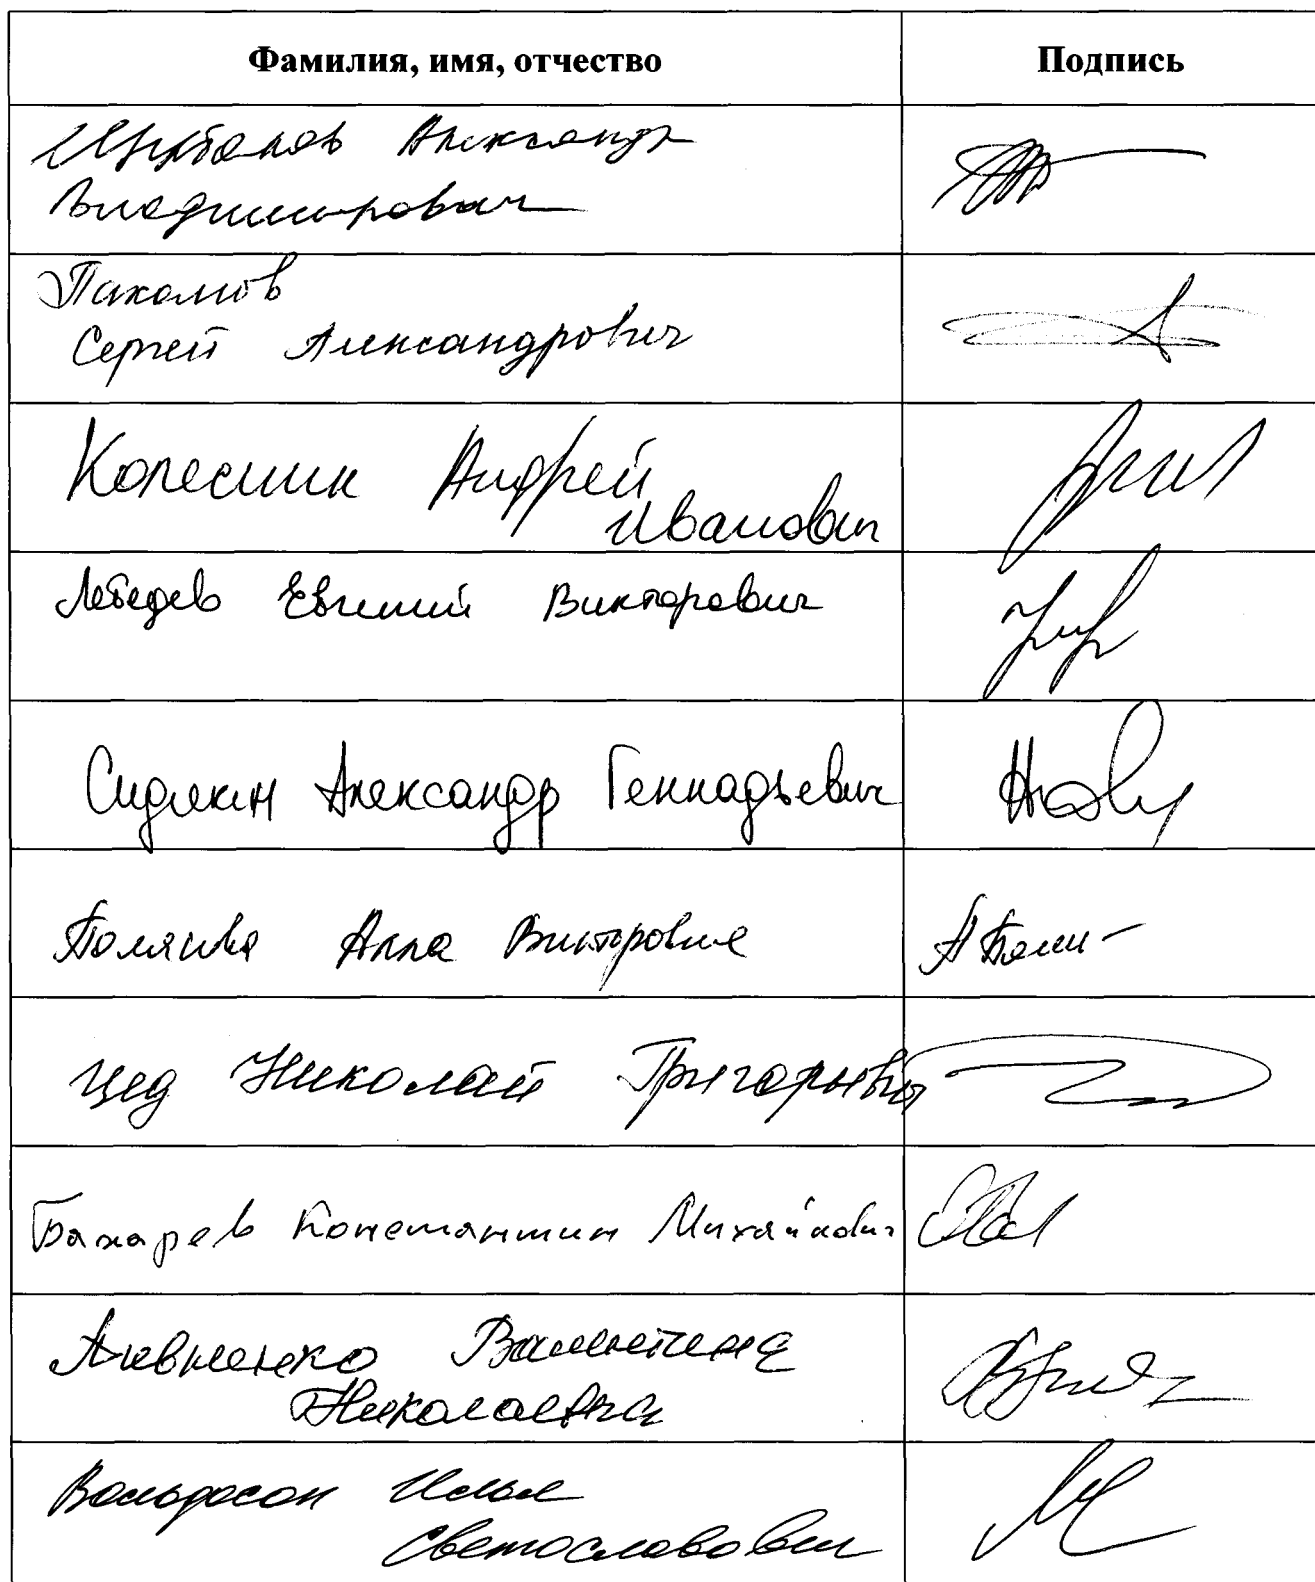 Фамилия, имя, отчество Подпись
Щербаков Александр
Владимирович
Пахомов
Сергей Александрович
Колесник Андрей
Иванович
Лебедев Евгений Викторович
Сидякин Александр Геннадьевич
Полякова Алла Викторовна
Цед Николай Григорьевич
Бахарев Константин Михайлович
Валентина
Николаевна
Илья
Святославович